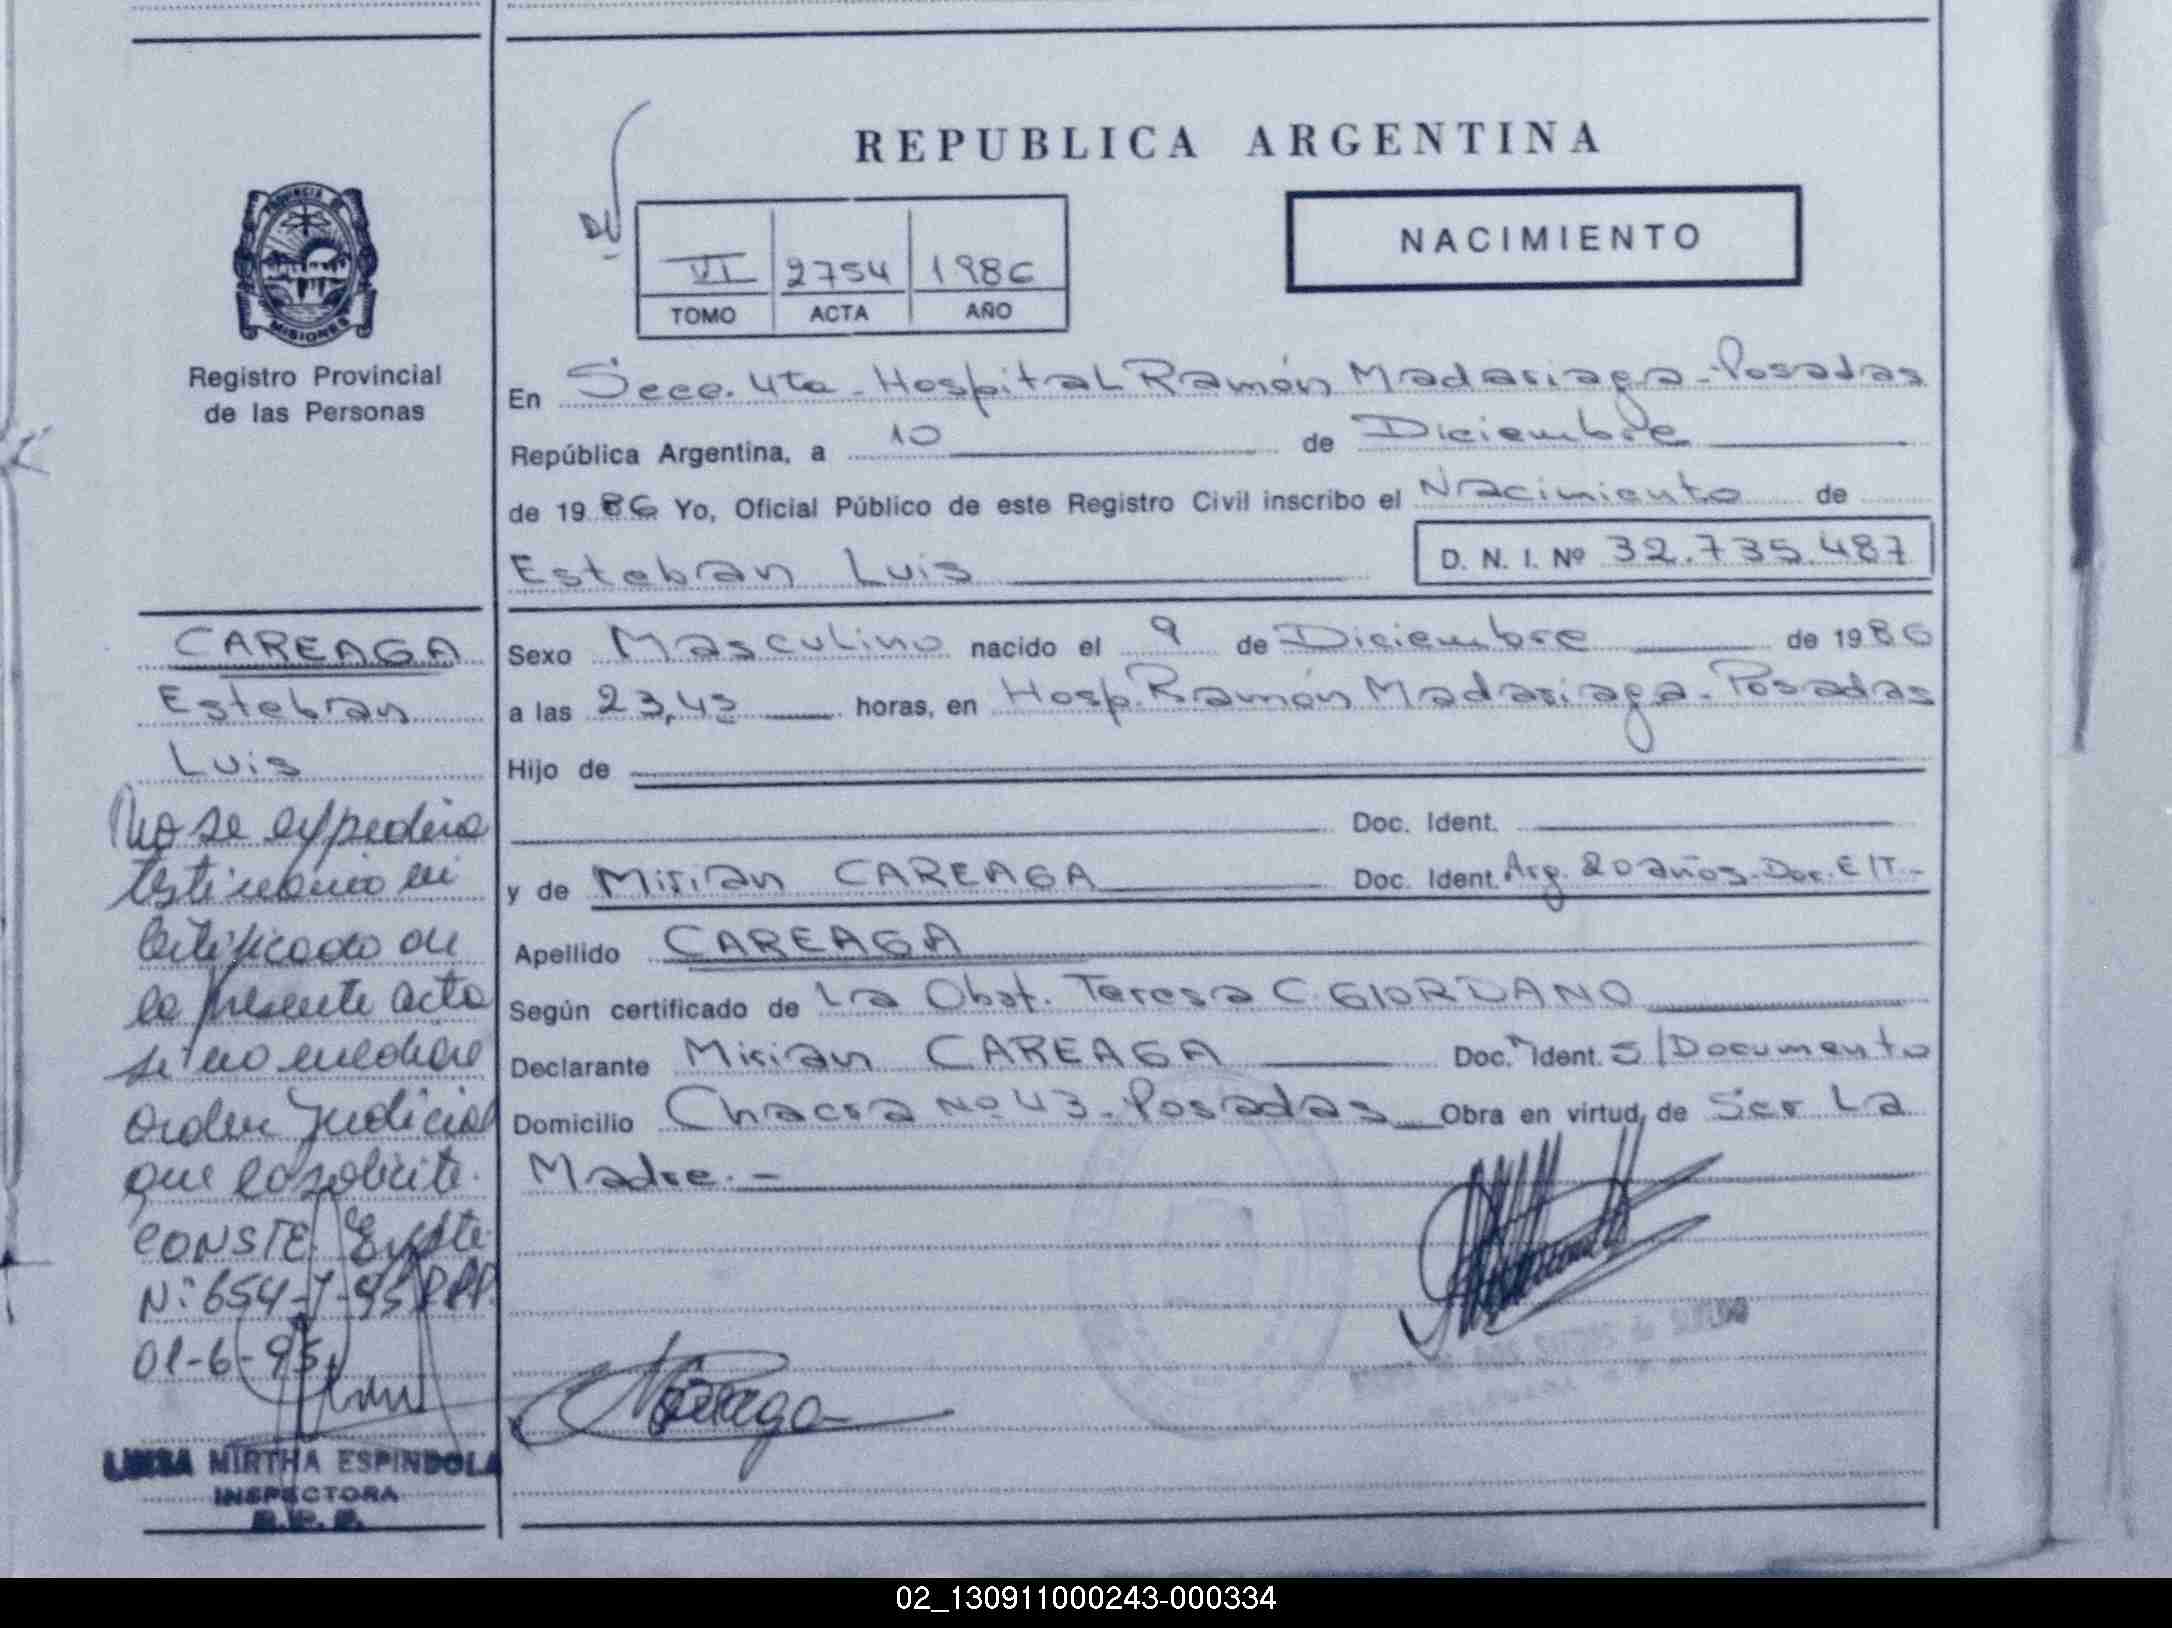 REPUBLICA ARGENTINA
NACIMIENTO
DU
VI 2754 1986
TOMO ACTA AÑO
PROVINCIA DE
MISIONES
Registro Provincial
de las Personas
En Secc. 4ta - Hospital Ramón Madariaga - Posadas
República Argentina, a 10 de Diciembre
de 1986 Yo, Oficial Público de este Registro Civil inscribo el Nacimiento de
Esteban Luis D. N. I. Nº 32.735.487
Sexo Masculino nacido el 9 de Diciembre de 1986
a las 23,43 horas, en Hosp. Ramón Madariaga - Posadas
Hijo de
Doc. Ident.
y de Mirian CAREAGA Doc. Ident. Arg. 20 años. Doc. E/T.-
Apellido CAREAGA
Según certificado de La Obst. Teresa C. GIORDANO
Declarante Mirian CAREAGA Doc. Ident. S/Documento
Domicilio Chacra Nº 43 - Posadas Obra en virtud de Ser La
Madre.-
CAREAGA
Esteban
Luis
No se expedira
testimonio ni
certificado de
la presente acta
si no mediare
Orden Judicial
que lo solicite.
CONSTE. Expte
Nº 654-J-95 RPP.
01-6-95
Careaga
LUISA MIRTHA ESPINDOLA
INSPECTORA
02_130911000243-000334